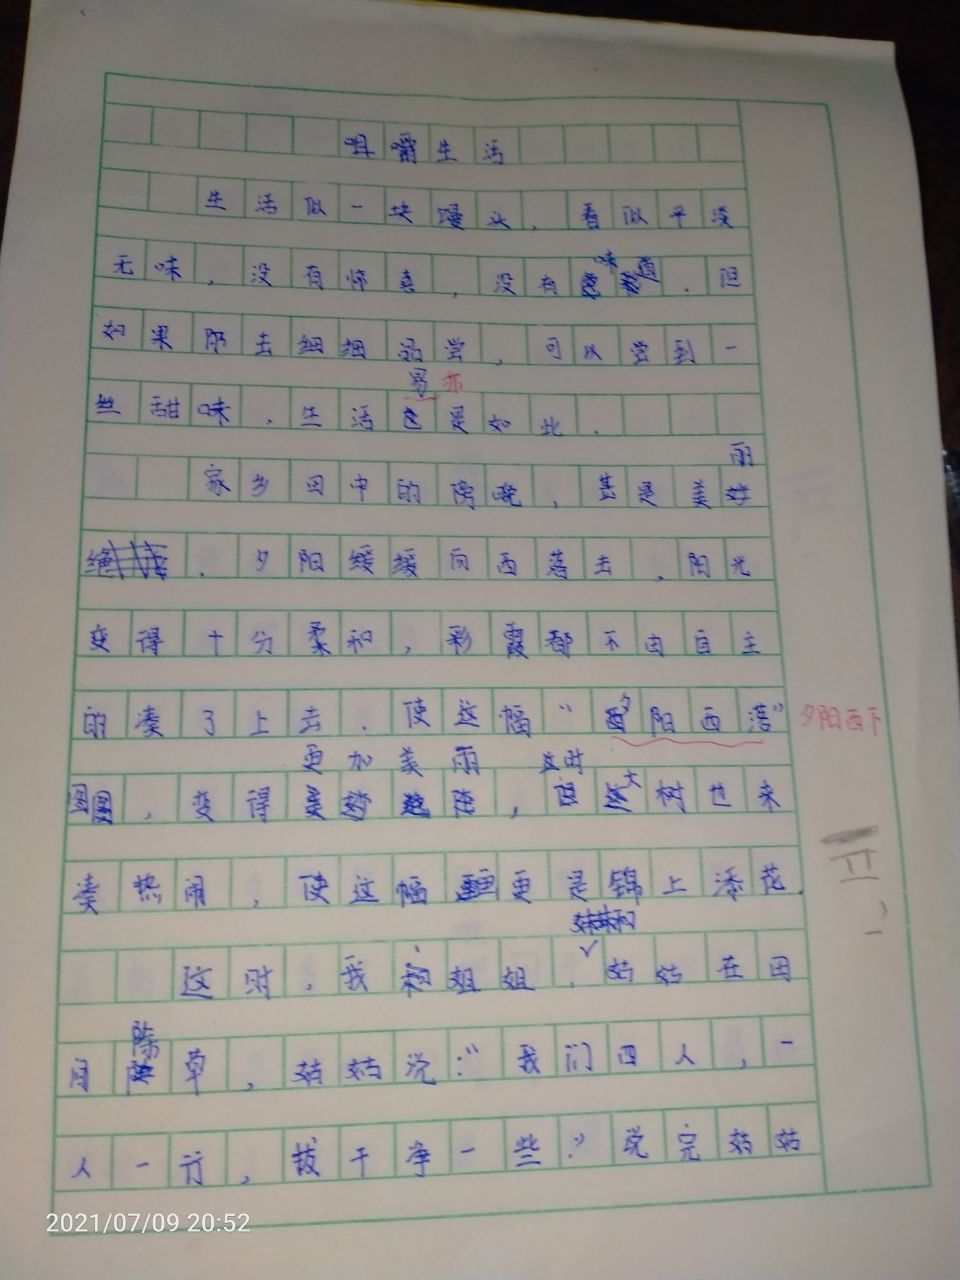 咀嚼生活
生活似一块馒头，看似平淡
无味，没有惊喜，没有味道．但
如果那去细细品尝，可以尝到一
亦
丝甜味，生活是如此．
丽
家乡田中的傍晚，甚是美
．夕阳缓缓向西落去，阳光
变得十分柔和，彩霞都不由自主
的凑了上去．使这幅“夕阳西落” 夕阳西下
更加美丽 这时
图，变得，大树也来
凑热闹，使这幅画更是锦上添花．
妹妹和
这时，我和姐姐、姑姑在田
除
间草，姑姑说：“我们四人，一
人一行，拔干净一些．”说完姑姑
2021/07/09 20:52